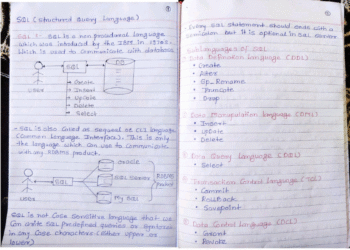 SQL (Structured Query Language)
SQL : SQL is a non procedural language
which was introduced by the IBM in 1970's
which is used to communicate with database
SQL
DB
user
→ Create
→ Insert
→ Update
→ Delete
→ Select
- SQL is also called as sequel or CLI language
(Common Language Interface). This is only
the language which can use to communicate
with any RDBMS product.
Oracle
SQL
SQL Server
RDBMS
Product
user
My SQL
SQL is not Case Sensitive language that we
Can write SQL predefined queries or syntaxes
in any Case characters (either upper or
lower)
- Every SQL statement should ends with a
semicolon but it is optional in SQL Server
SubLanguages of SQL
Data Definition Language (DDL)
• Create
• Alter
• Sp_Rename
• Truncate
• Drop
Data Manipulation language (DML)
• Insert
• Update
• Delete
Data Query Language (DQL)
• Select
Transaction Control Language (TCL)
• Commit
• Rollback
• Savepoint
Data Control Language (DCL)
• Grant
• Revoke